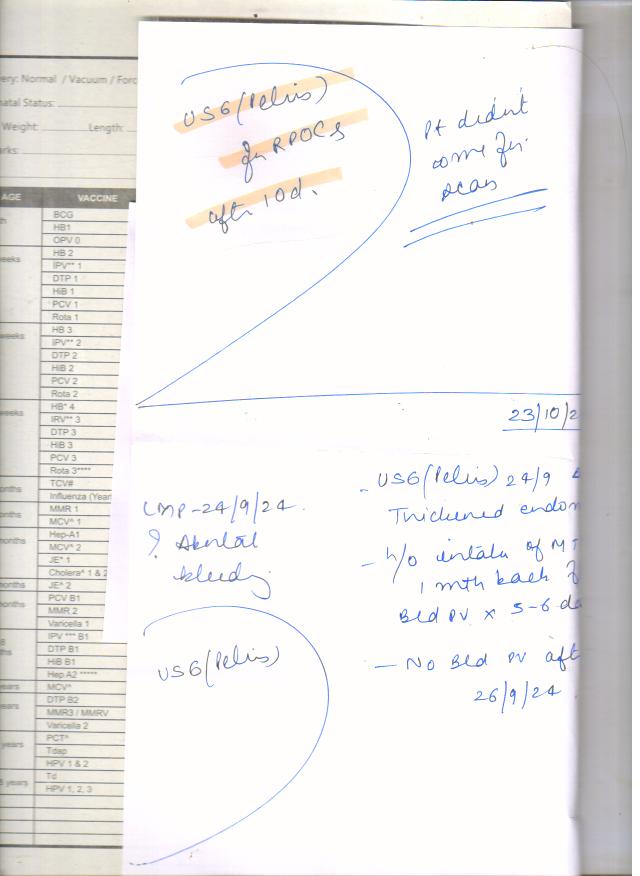 ery: Normal / Vacuum / Forc
natal Status:
Weight: Length:
rks:
AGE VACCINE
BCG
HB1
OPV 0
eeks HB 2
IPV** 1
DTP 1
HiB 1
PCV 1
Rota 1
weeks HB 3
IPV** 2
DTP 2
HiB 2
PCV 2
Rota 2
weeks HB* 4
IRV** 3
DTP 3
HiB 3
PCV 3
Rota 3****
onths TCV#
Influenza (Year
onths MMR 1
MCV^ 1
months Hep-A1
MCV^ 2
JE^ 1
Cholera^ 1 & 2
months JE^ 2
months PCV B1
MMR 2
Varicella 1
IPV *** B1
DTP B1
HiB B1
Hep A2 *****
years MCV^
years DTP B2
MMR3 / MMRV
Varicella 2
years PCT^
Tdap
HPV 1 & 2
years Td
HPV 1, 2, 3
USG (Pelvis)
for RPOCs
after 10d.
Pt didn't
come for
scan
23/10/2
LMP-24/9/24.
? Abortal
bleeding
USG (Pelvis)
- USG (Pelvis) 24/9
Thickened endom
- h/o intake of MT
1 mth back
Bld PV x 5-6 da
- No Bld PV aft
26/9/24.